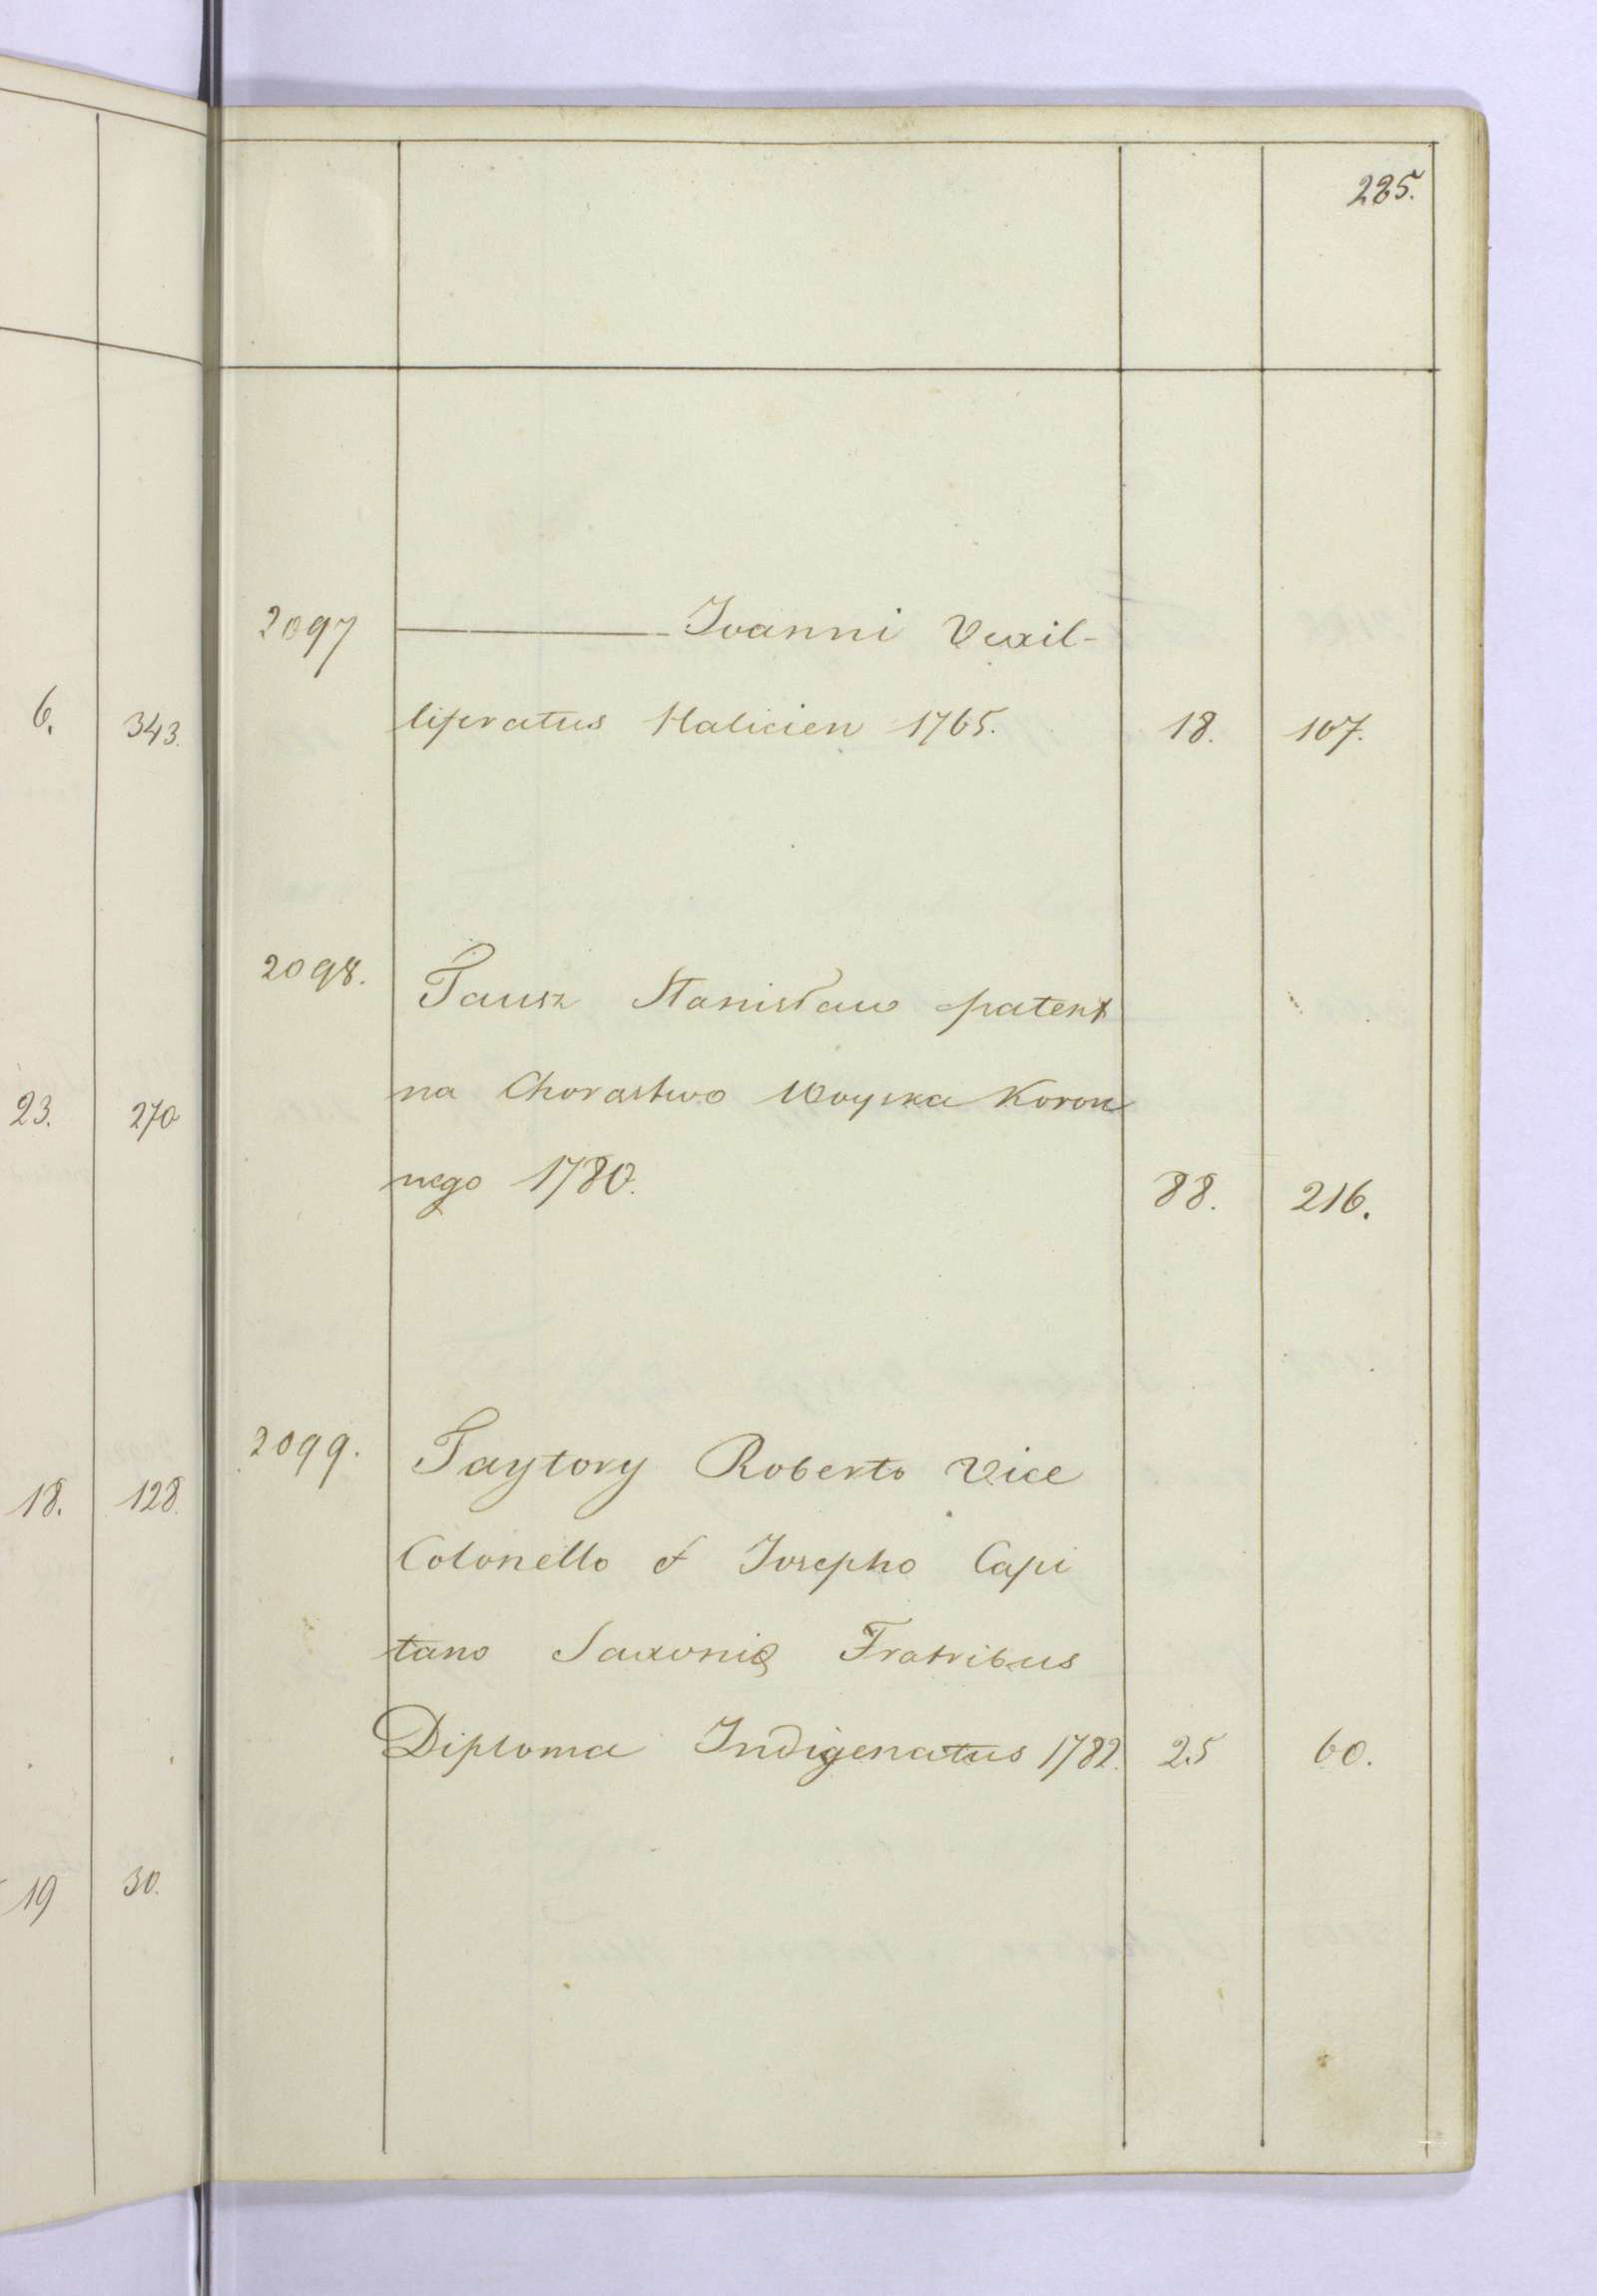 225.
2097 Joanni Vexil-
liferatus Halicien 1765. 18. 107.
2098. Tausz Stanisław patent
na Chorąstwo Woyska Koron
nego 1780. 88. 216.
2099. Taytory Roberto Vice
Colonello et Josepho Capi
tano Saxonię Fratribus
Diploma Indigenatus 1782. 25 60.
6. 343.
23. 270
18. 128.
19 30.